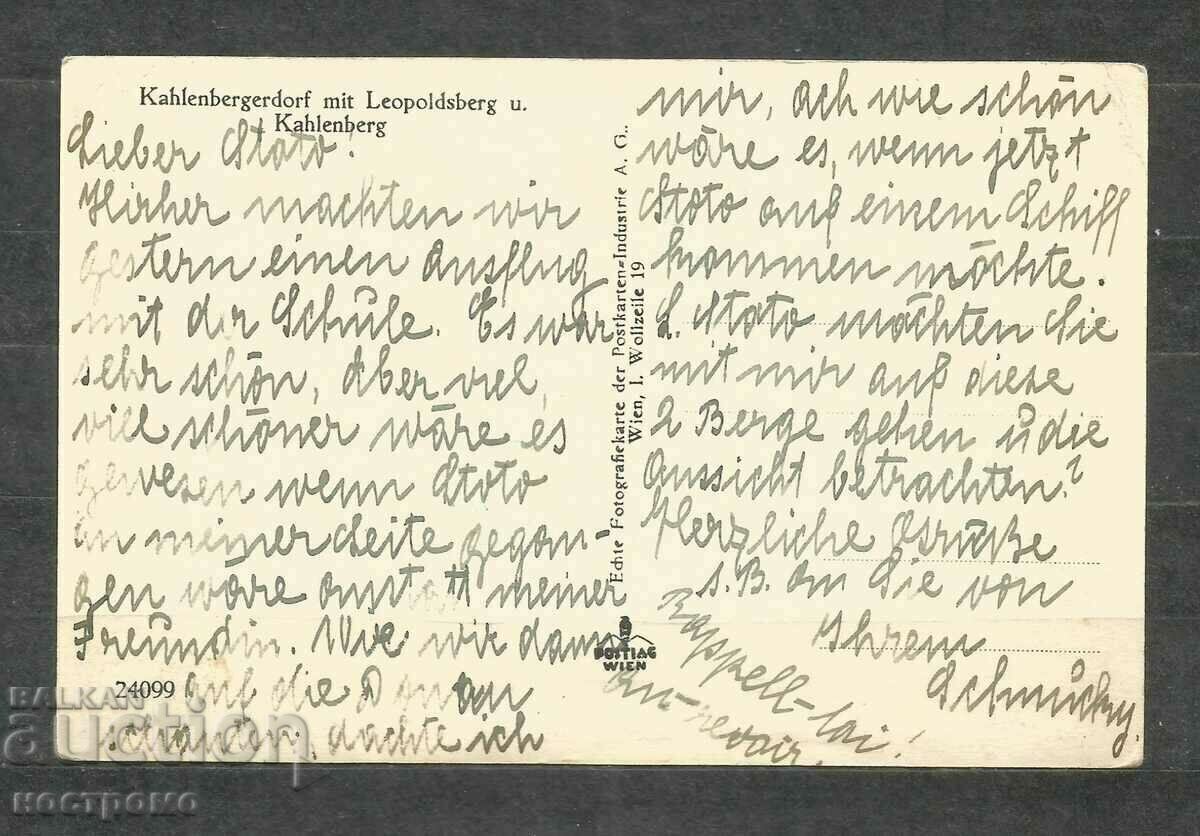 Kahlenbergerdorf mit Leopoldsberg u.
Kahlenberg
Lieber Stoto!
Hirher machten wir
gestern einen Ausflug
mit der Schule. Es war
sehr schön, Aber viel,
viel schöner wäre es
gewesen wenn Stoto
an meiner Seite gegan-
gen wäre anstatt meiner
Freundin. Wie wir dann
auf die Donau
schauten, dachte ich
24099
Echte Fotografiekarte der Postkarten-Industrie A. G.,
Wien, I. Wollzeile 19
POSTIAG
WIEN
mir, ach wie schön
wäre es, wenn jetzt
Stoto auf einem Schiff
kommen möchte.
L. Stoto möchten Sie
mit mir auf diese
2 Berge gehen u die
Aussicht betrachten?
Herzliche Grüße
s. B. an Sie von
Ihrem
Schnucky.
Rappell-toi!
Au-revoir.
BALKAN
auction
костромо